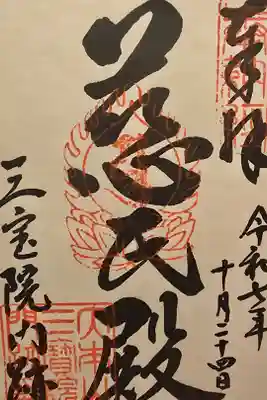 奉拝
令和七年
十月二十四日
慈氏殿
三宝院門跡